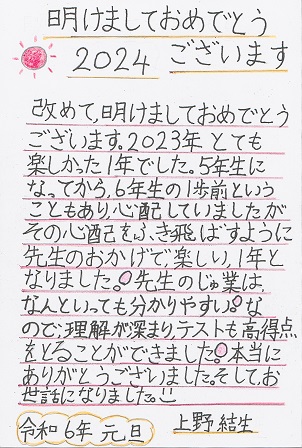 明けましておめでとう
2024 ございます
改めて,明けましておめでとう
ございます。2023年 とても
楽しかった1年でした。5年生に
なってから,6年生の1歩前という
こともあり,心配していましたが
その心配をふき飛ばすように
先生のおかげで楽しい,1年と
なりました。先生のじゅ業は,
なんといっても分かりやすい。な
ので,理解が深まりテストも高得点
をとることができました。本当に
ありがとうございました。そして,お
世話になりました。
令和6年 元日 上野 結生